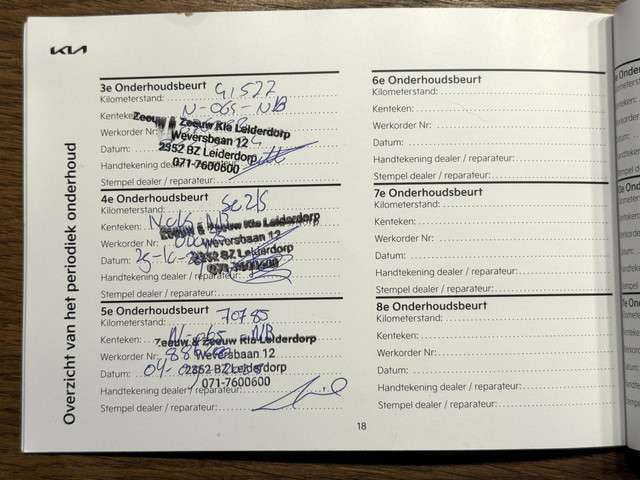 KIA
Overzicht van het periodiek onderhoud
3e Onderhoudsbeurt
Kilometerstand:
Kenteken: N-065-NB
Werkorder Nr:
Datum:
Handtekening dealer / reparateur:
Stempel dealer / reparateur:
Zeeuw & Zeeuw Kia Leiderdorp
Weversbaan 12
2352 BZ Leiderdorp
071-7600600
4e Onderhoudsbeurt
Kilometerstand:
Kenteken:
Werkorder Nr:
Datum:
Handtekening dealer / reparateur:
Stempel dealer / reparateur:
Zeeuw & Zeeuw Kia Leiderdorp
Weversbaan 12
2352 BZ Leiderdorp
071-7600600
5e Onderhoudsbeurt
Kilometerstand: 70785
Kenteken: N-065-NB
Werkorder Nr:
Datum:
Handtekening dealer / reparateur:
Stempel dealer / reparateur:
Zeeuw & Zeeuw Kia Leiderdorp
Weversbaan 12
2352 BZ Leiderdorp
071-7600600
6e Onderhoudsbeurt
Kilometerstand:
Kenteken:
Werkorder Nr:
Datum:
Handtekening dealer / reparateur:
Stempel dealer / reparateur:
7e Onderhoudsbeurt
Kilometerstand:
Kenteken:
Werkorder Nr:
Datum:
Handtekening dealer / reparateur:
Stempel dealer / reparateur:
8e Onderhoudsbeurt
Kilometerstand:
Kenteken:
Werkorder Nr:
Datum:
Handtekening dealer / reparateur:
Stempel dealer / reparateur:
18